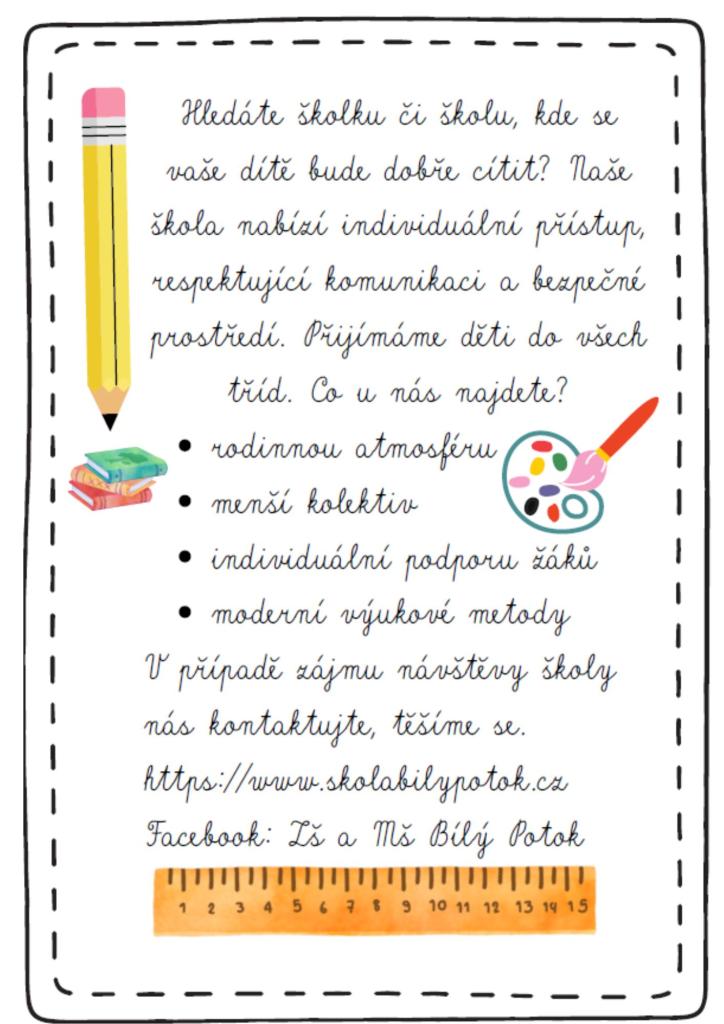 Hledáte školku či školu, kde se
vaše dítě bude dobře cítit? Naše
škola nabízí individuální přístup,
respektující komunikaci a bezpečné
prostředí. Přijímáme děti do všech
tříd. Co u nás najdete?
• rodinnou atmosféru
• menší kolektiv
• individuální podporu žáků
• moderní výukové metody
V případě zájmu návštěvy školy
nás kontaktujte, těšíme se.
https://www.skolabilypotok.cz
Facebook: Zš a Mš Bílý Potok
1 2 3 4 5 6 7 8 9 10 11 12 13 14 15